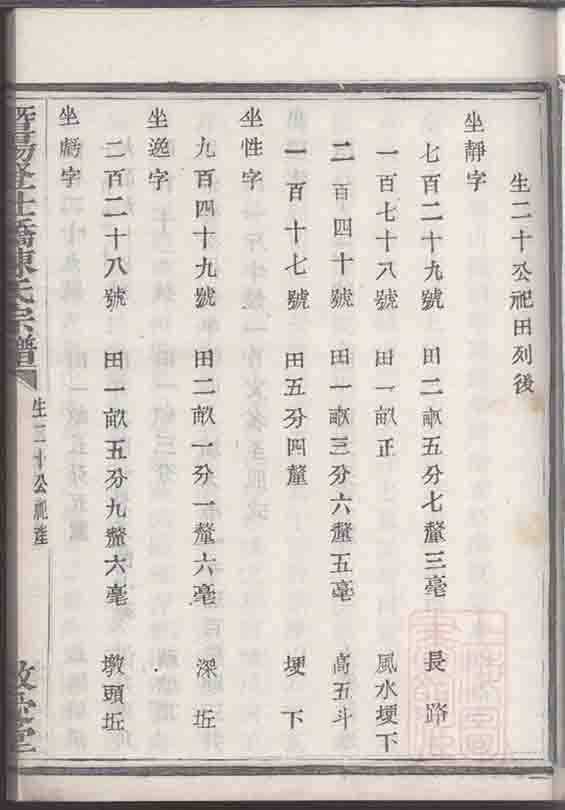 生二十公祀田列後
坐靜字
七百二十九號 田二畝五分七釐三毫 長路
一百七十八號 田一畝正 風水埂下
二百四十號 田一畝三分六釐五毫 高五斗
一百十七號 田五分四釐 埂下
坐性字
九百四十九號 田二畝一分一釐六毫 深坵
坐逸字
二百二十八號 田一畝五分九釐六毫 墩頭坵
坐虧字
暨陽 橋陳氏宗譜 生二十公祀產 堂